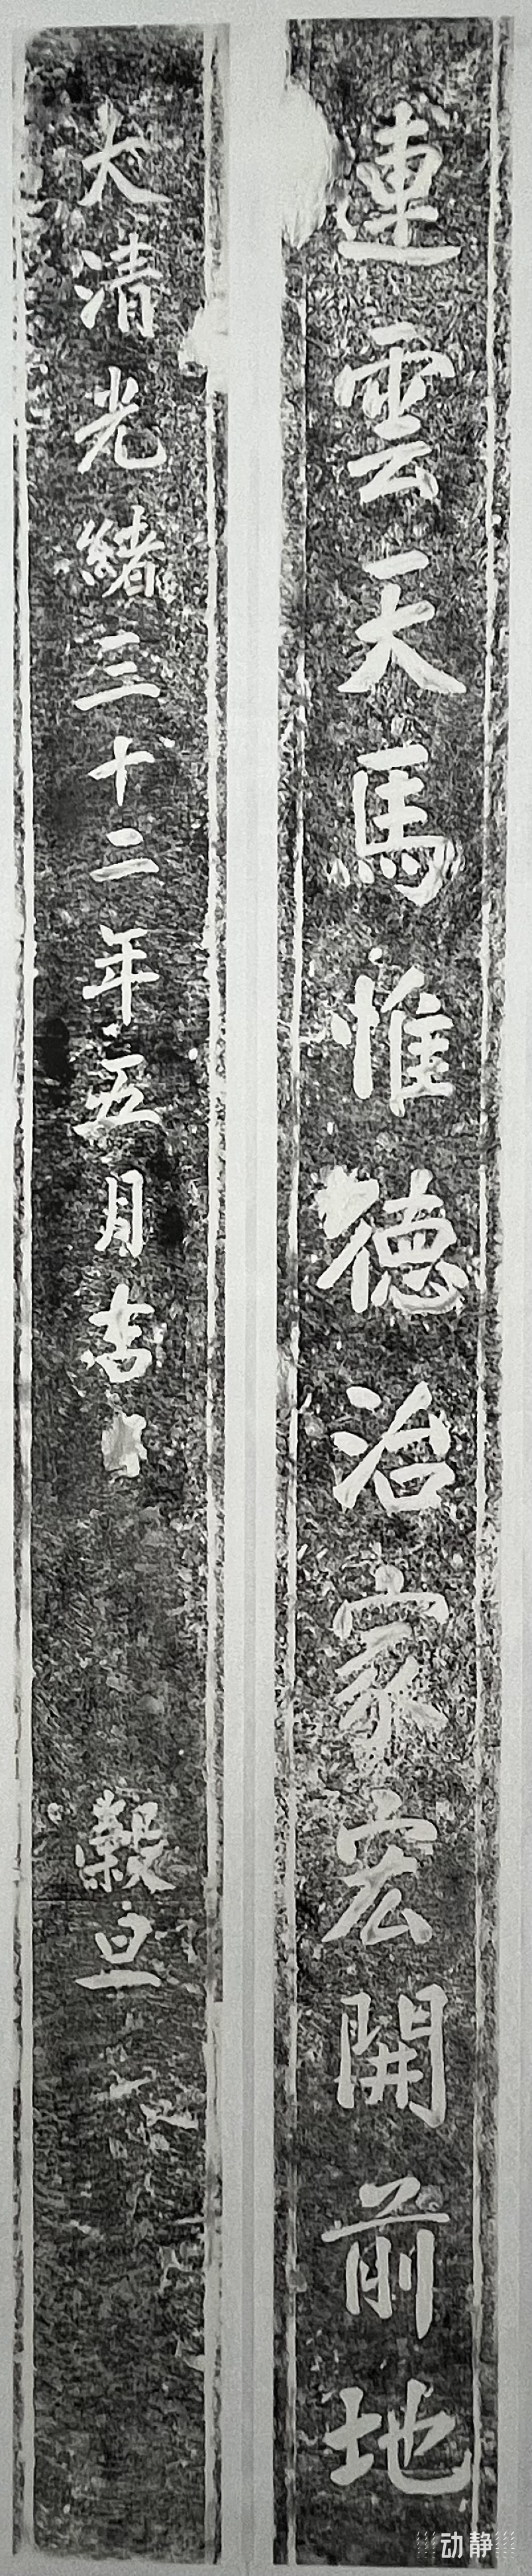 連雲天馬惟德治家宏開前地
大清光緒三十二年五月吉日
穀旦
动静